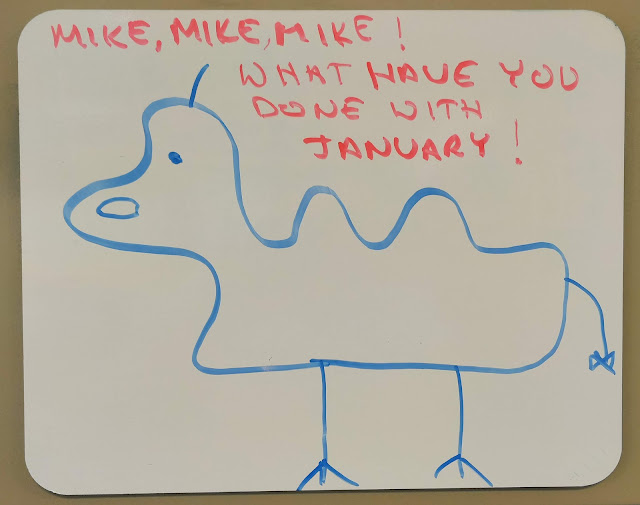 MIKE, MIKE, MIKE!
WHAT HAVE YOU
DONE WITH
JANUARY!